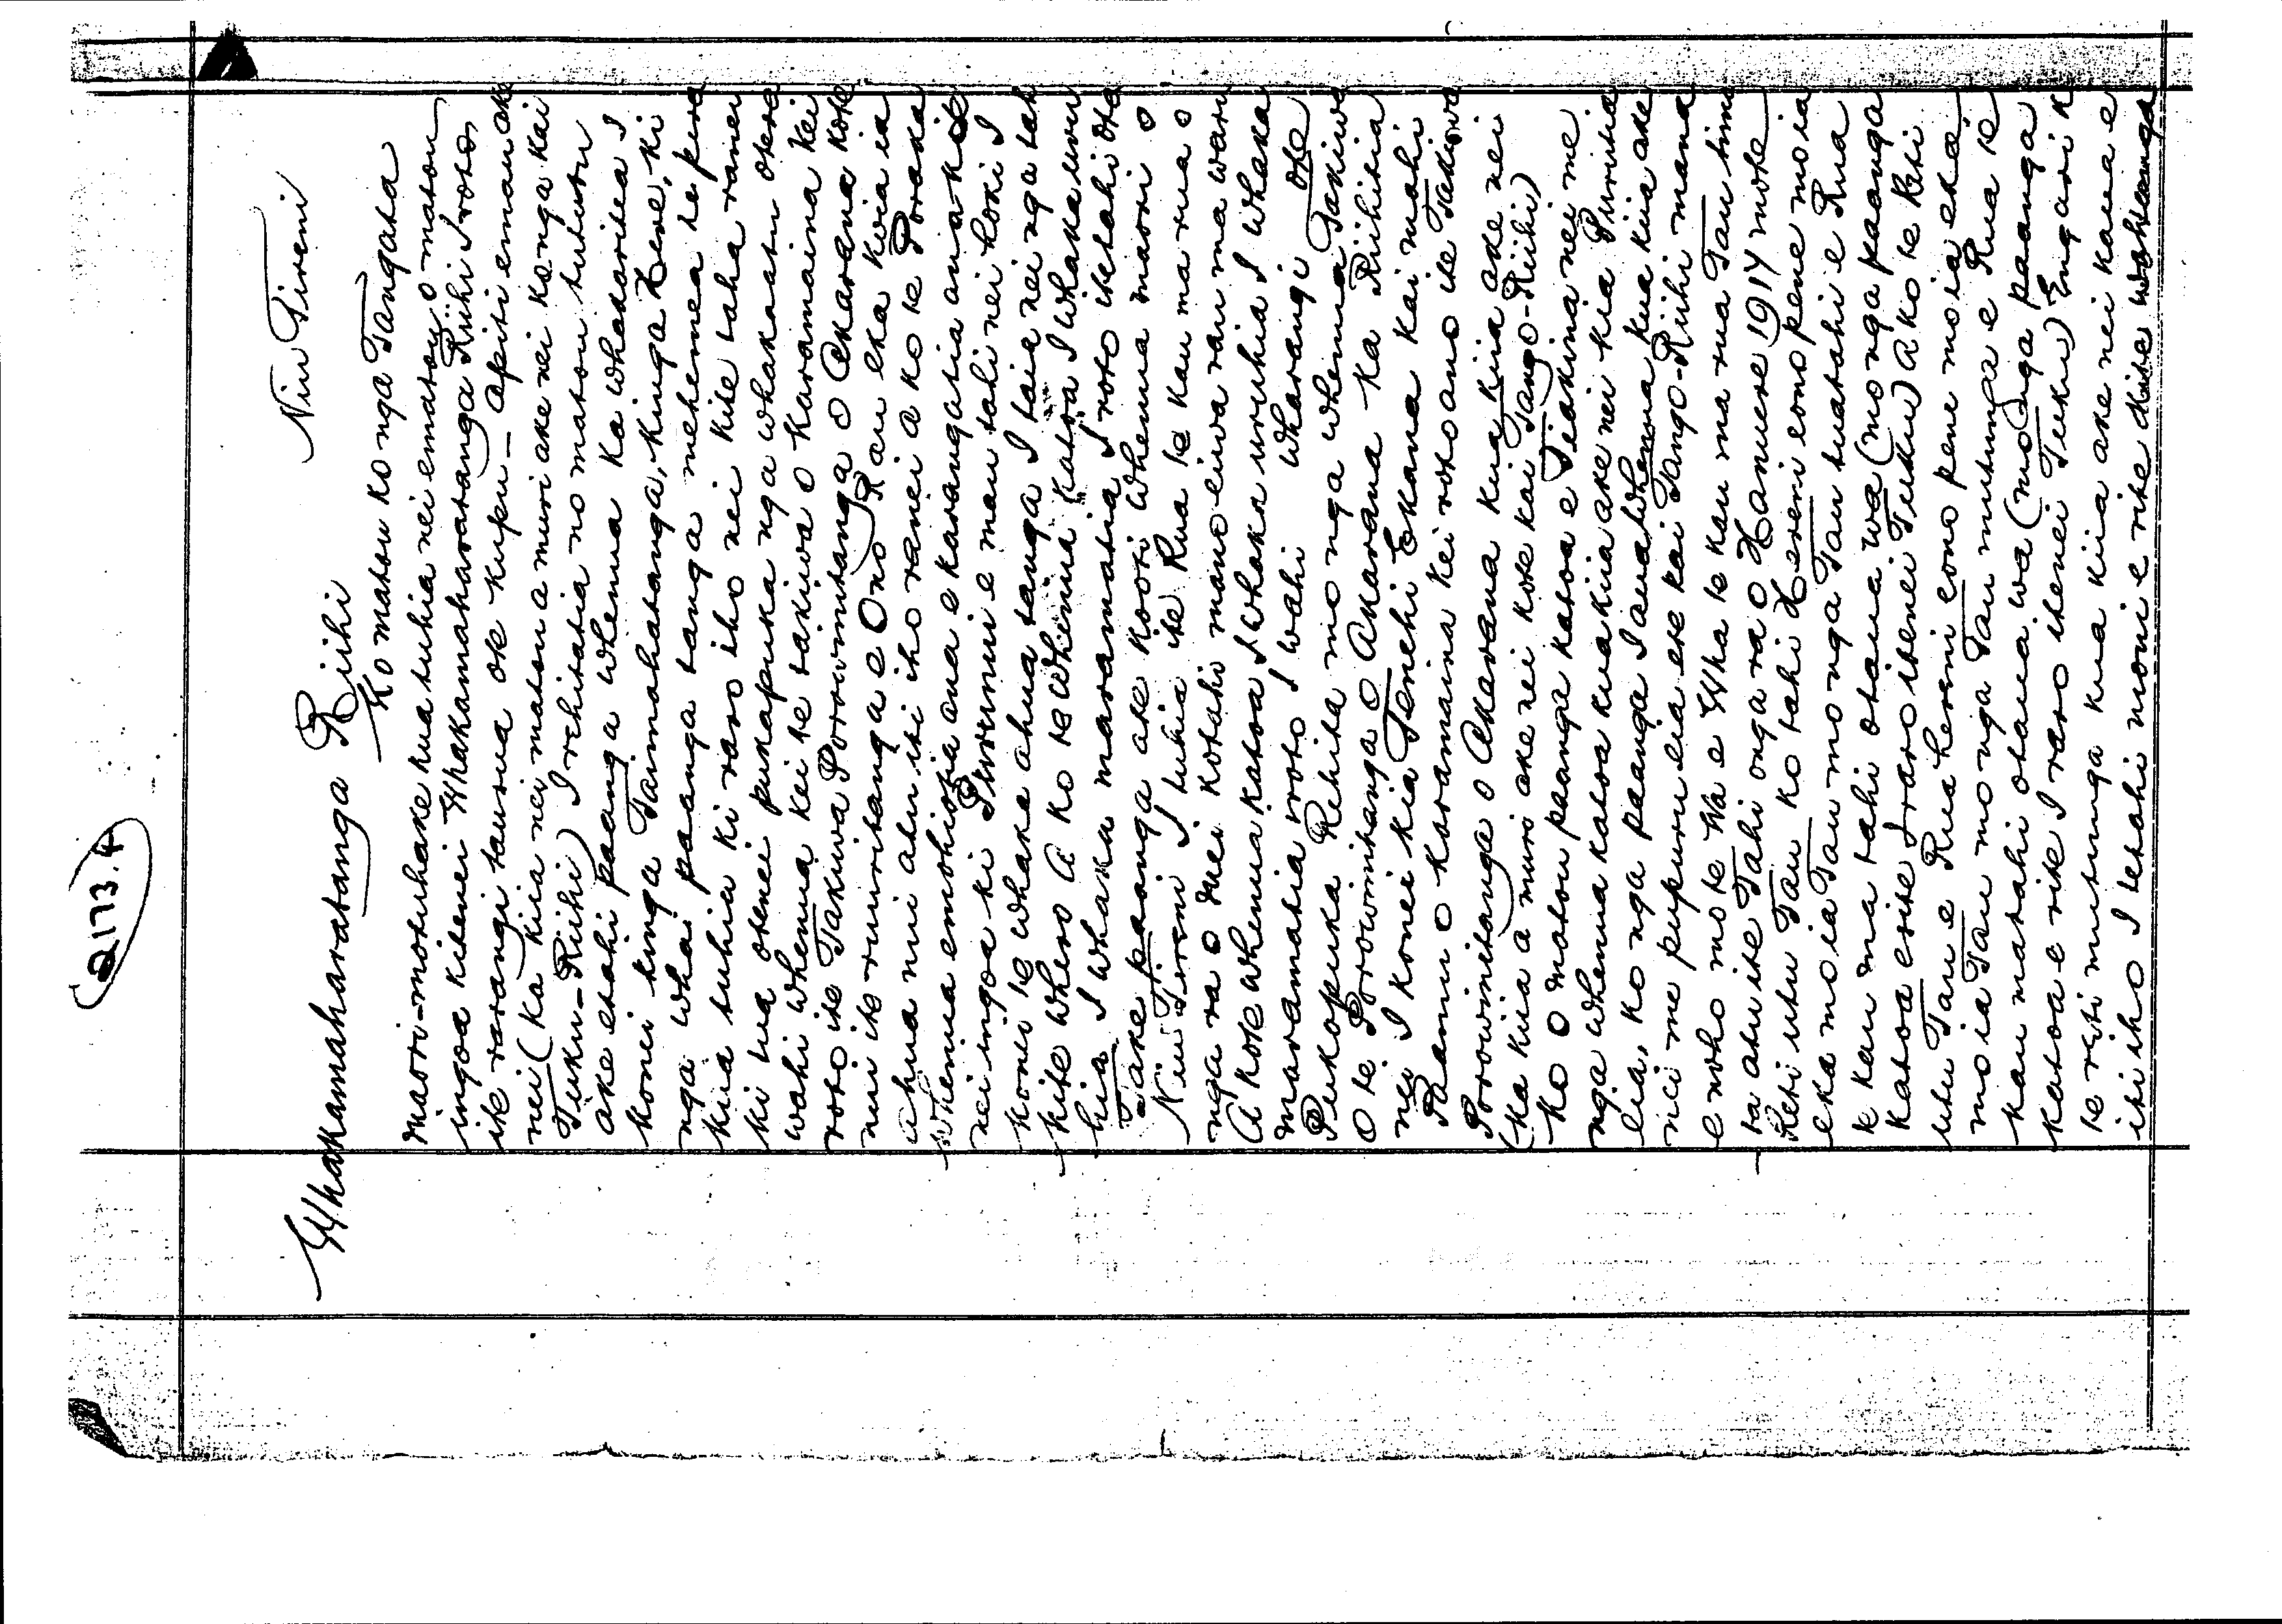 2173.4
Niu Tireni
Whakamaharatanga Riihi
Ko matou ko nga Tangata
maori-motuhake kua tuhia nei ematou o matou
ingoa kitenei Whakamaharatanga Riihi Iroto,
ite rarangi tauira ote kupu - apiti emau ake
nei (ka kiia nei matou a muri ake nei ko nga kai
Tuku-Riihi) I rehitatia no matou tuturu
ake etahi paanga whenua ka whakaritea I
konei kinga Taimahatanga, kinga Here, ki
nga whai paanga tanga mehemea te pera
kua tuhia ki raro iho nei kite taha ranei
ki tua otenei pukapuka nga whakaatu otera
wahi whenua kei te takiwa o Karamaina kei
roto ite Takiwa Porowinitanga o Akarana kote
nui ite ruuritanga e Ono Rau eka kuia ia
ahua nui atu iti iho ranei a ko te Poraka
whenua emohiotia ana e karangatia ana kite
nei ingoa ki Puremui e mau tahi nei hoki I
konei te whaka ahua tanga I taia nei nga tah
kite whero A ko te whenua katoa I whakauru
hia I whaka maramatia I roto itetahi ota
Take paanga ake kooti whenua maori o
Niu Tireni I tuhia ite Rua te kau ma rua o
nga ra o Mei kotahi mano eiwa rau ma waru
A kote whenua katoa I whaka uruhia I whaka
maramatia iroto I wahi wharangi ote
Pukapuka Rehita mo nga whenua Takiwa
o te Porowinitanga o Akarana ka Riihitia
nei I konei kia Tenehi Ekana kai mahi
Paamu o Karamaina kei roto ano ite Takiwa
Porowinitanga o Akarana kua kiia ake nei
(ka kiia a muri ake nei kote kai Tango-Riihi)
Ko o matou paanga katoa e Tiakina nei me
nga whenua katoa kua kiia ake nei kia Puritia
eia, ko nga paanga I aua whenua kua kiia ake
nei me pupuru eia ete kai Tango-Riihi mana
e noho mo te Wa e Wha te kau ma rua Tau tima
ta atu ite Tahi onga ra o Hanuere 1914 mote
Reti utu Tau ko tahi Hereni eono pene mo ia
eka mo ia Tau mo nga Tau tuatahi e Rua
te kau ma tahi otaua wa (mo nga paanga
katoa erite I raro itenei Tuku) A ko te Reti
utu Tau e Rua hereni eono pene moia eka
moia Tau mo nga Tau mutunga e Rua te
kau matahi otaua wa (mo nga paanga
katoa e rite I raro itenei Tuku) Engari k
te reti mutunga kua kiia ake nei kaua e
iti iho I tetahi moni e rite ana kite wahanga